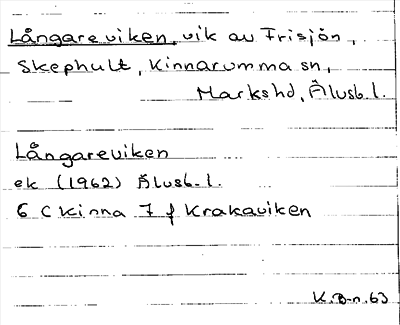 Långareviken, vik av Frisjön,
Skephult, Kinnarumma sn,
Markshd, Älvsb.l.
Långareviken
ek (1962) Älvsb.l.
6 C Kinna 7 f Krakaviken
K.B-n.63